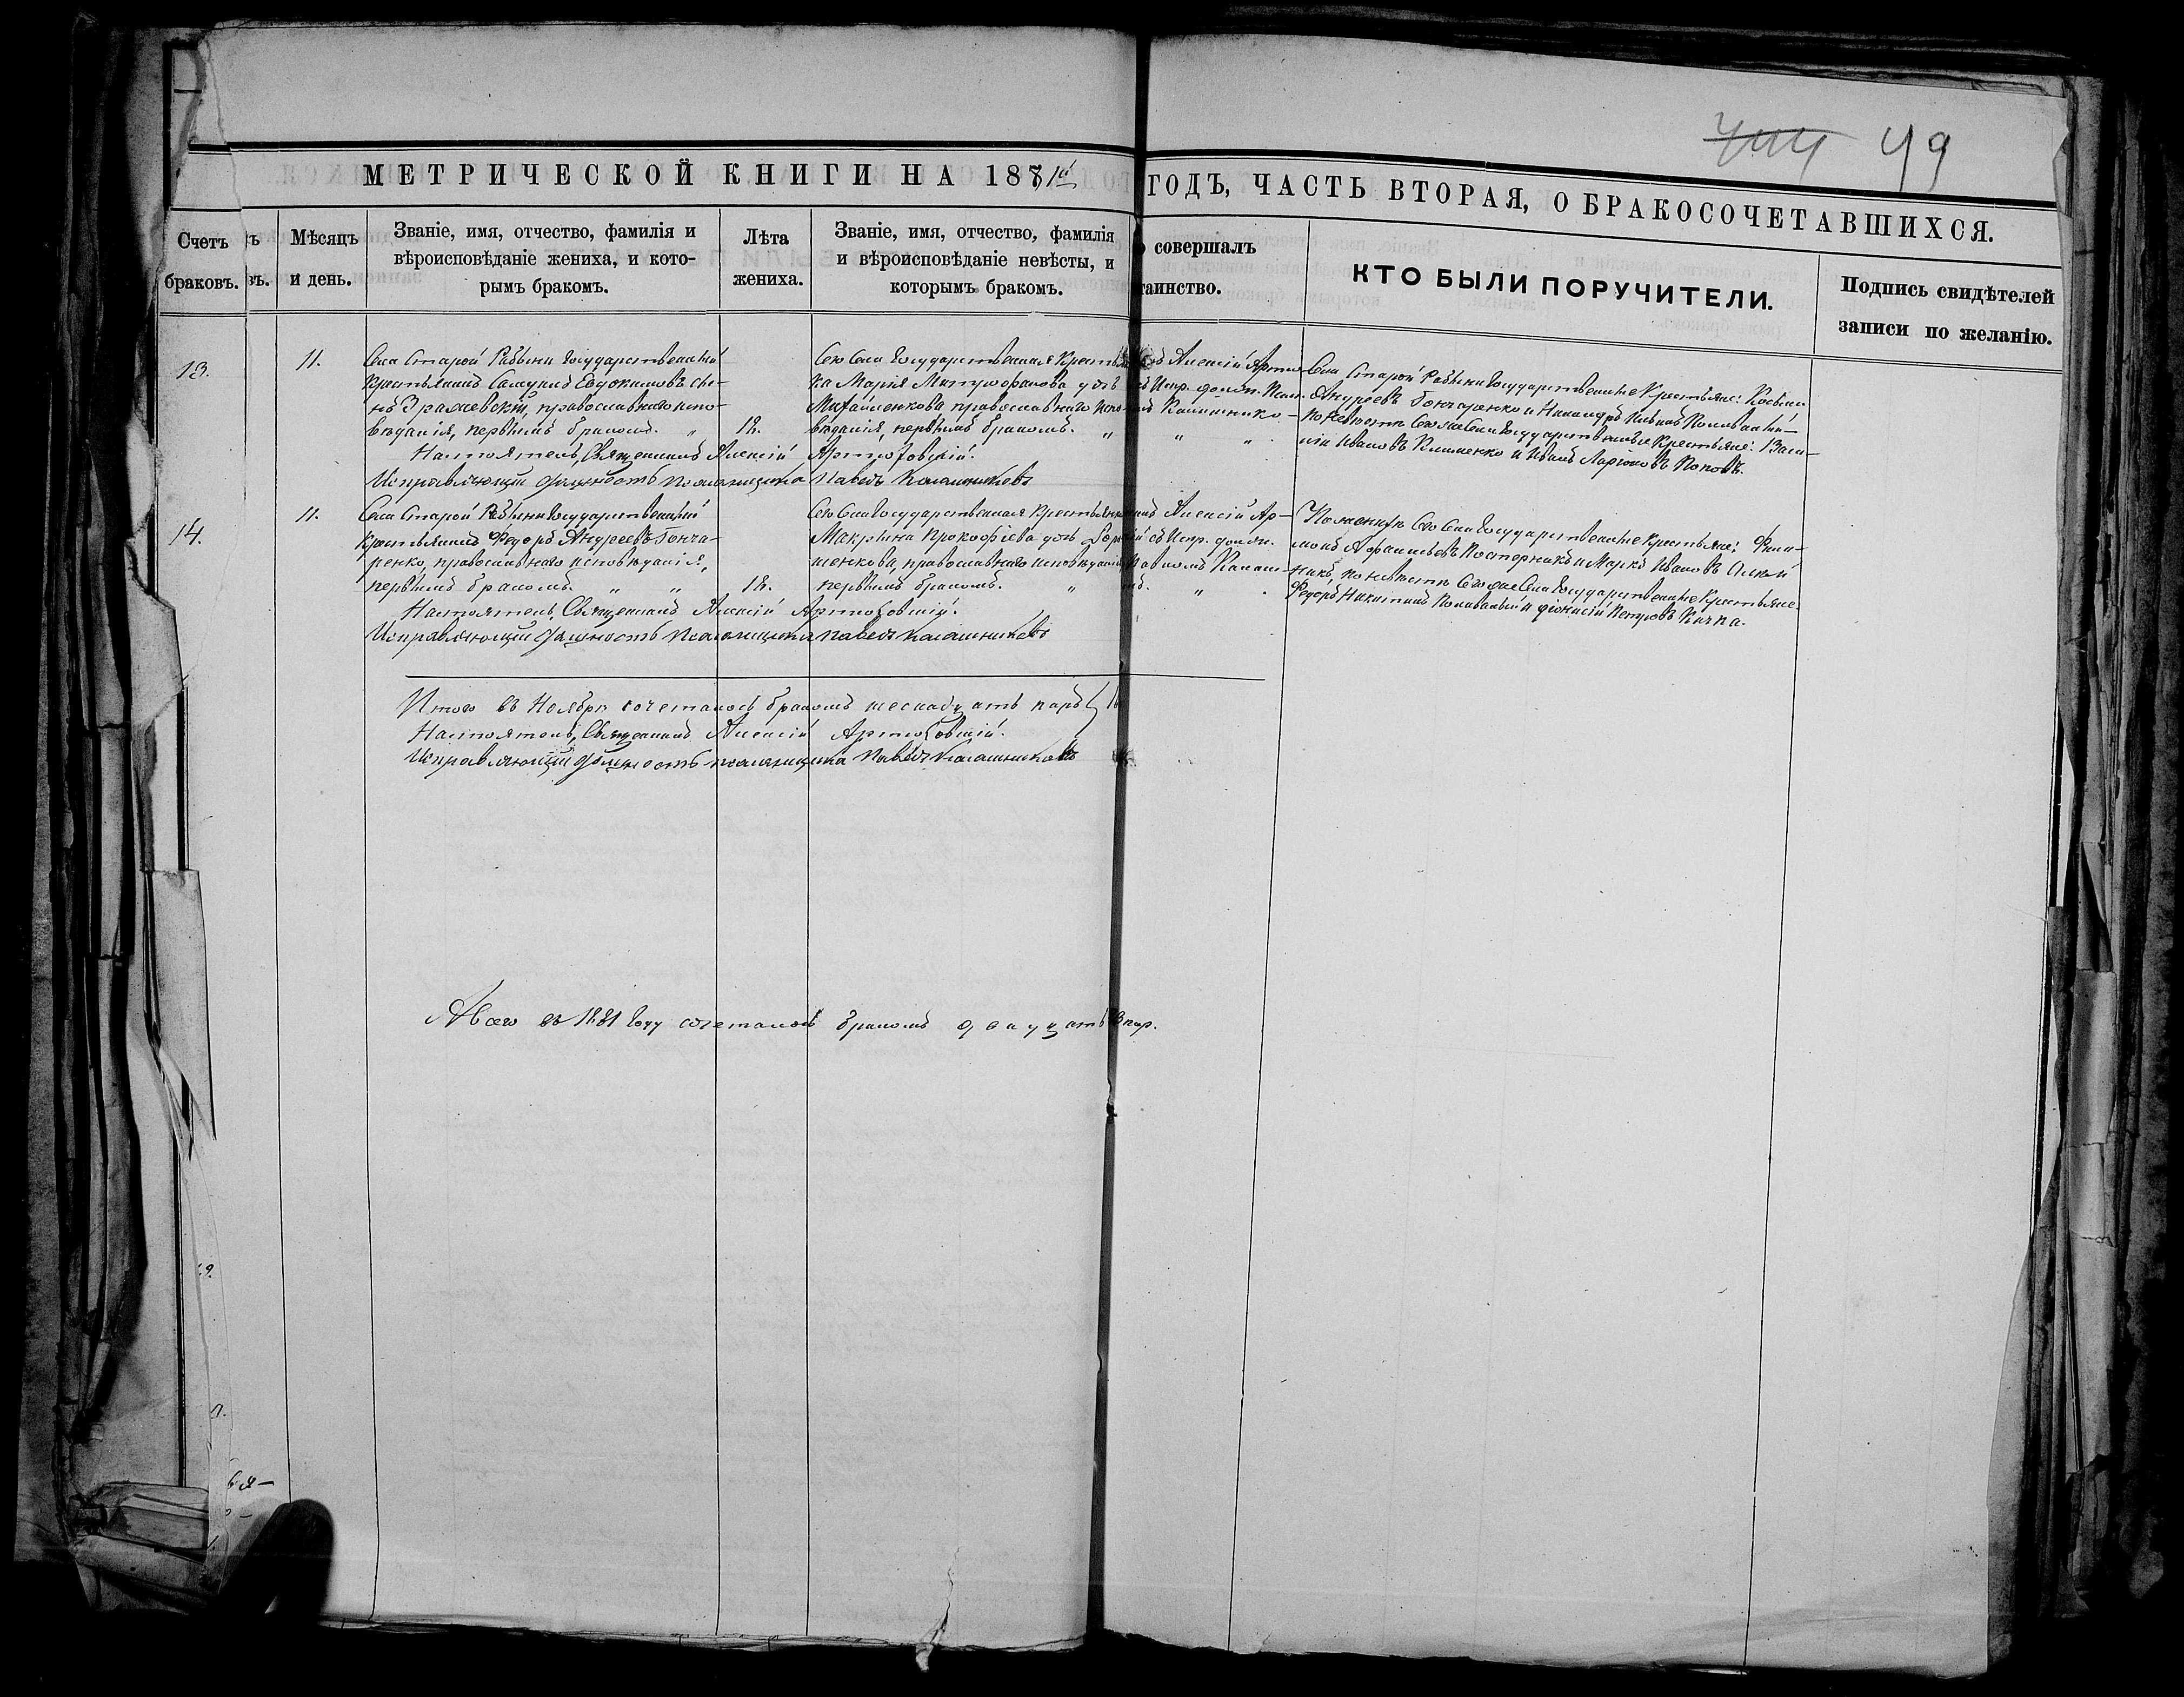 49
МЕТРИЧЕСКОЙ КНИГИ НА 1881й ГОДЪ, ЧАСТЬ ВТОРАЯ, О БРАКОСОЧЕТАВШИХСЯ.
Счетъ
браковъ.
Мѣсяцъ
и день.
Званіе, имя, отчество, фамилія и
вѣроисповѣданіе жениха, и кото-
рымъ бракомъ.
Лѣта
жениха.
Званіе, имя, отчество, фамилія
и вѣроисповѣданіе невѣсты, и
которымъ бракомъ.
совершалъ
таинство.
КТО БЫЛИ ПОРУЧИТЕЛИ.
Подпись свидѣтелей
записи по желанію.
13.
11.
Села Старой Рябыни Государственный
крестьянинъ Самуилъ Евдокимовъ
православнаго испо-
вѣданія, первымъ бракомъ. "
18.
Сего Села Государственная Крестьян
ка Марія Митрофанова
Михайленкова, православнаго
вѣданія, первымъ бракомъ. "
Алексій Арто
Испр. должн. Псал
Калашнико-
" "
Села Старой Рябыни Государственные Крестьяне:
Андреевъ Гончаренко и Никандръ
по невѣстѣ Сего же Села Государственные Крестьяне: Васи-
лій Ивановъ Клименко и Иванъ Ларіоновъ Поповъ.
Настоятель, Священникъ Алексій Артюховскій.
Исправляющій должность псаломщика Павелъ Калашниковъ
14.
11.
Села Старой Рябыни Государственный
крестьянинъ Ѳедоръ Андреевъ Гонча-
ренко, православнаго исповѣданія,
первымъ бракомъ. " "
18.
Сего Села Государственная Крестьянка
Макрина Прокофіева дочь
шенкова, православнаго исповѣданія,
первымъ бракомъ. "
Алексій Ар-
съ Испр. должн.
Павломъ Калаш-
"
По женихѣ Сего Села Государственные Крестьяне: Фили-
монъ Афанасьевъ Костерникъ и Марко Ивановъ
никъ, по невѣстѣ Сего же Села Государственные Крестьяне
Ѳедоръ Никитинъ и Діонисій Петровъ Кичка.
Настоятель, Священникъ Алексій Артюховскій.
Исправляющій должность псаломщика Павелъ Калашниковъ
Итого въ Ноябрѣ сочеталось бракомъ шеснадцать паръ 16
Настоятель, Священникъ Алексій Артюховскій.
Исправляющій должность псаломщика Павелъ Калашниковъ
А всего въ 1881 году сочеталось бракомъ двадцать пар.